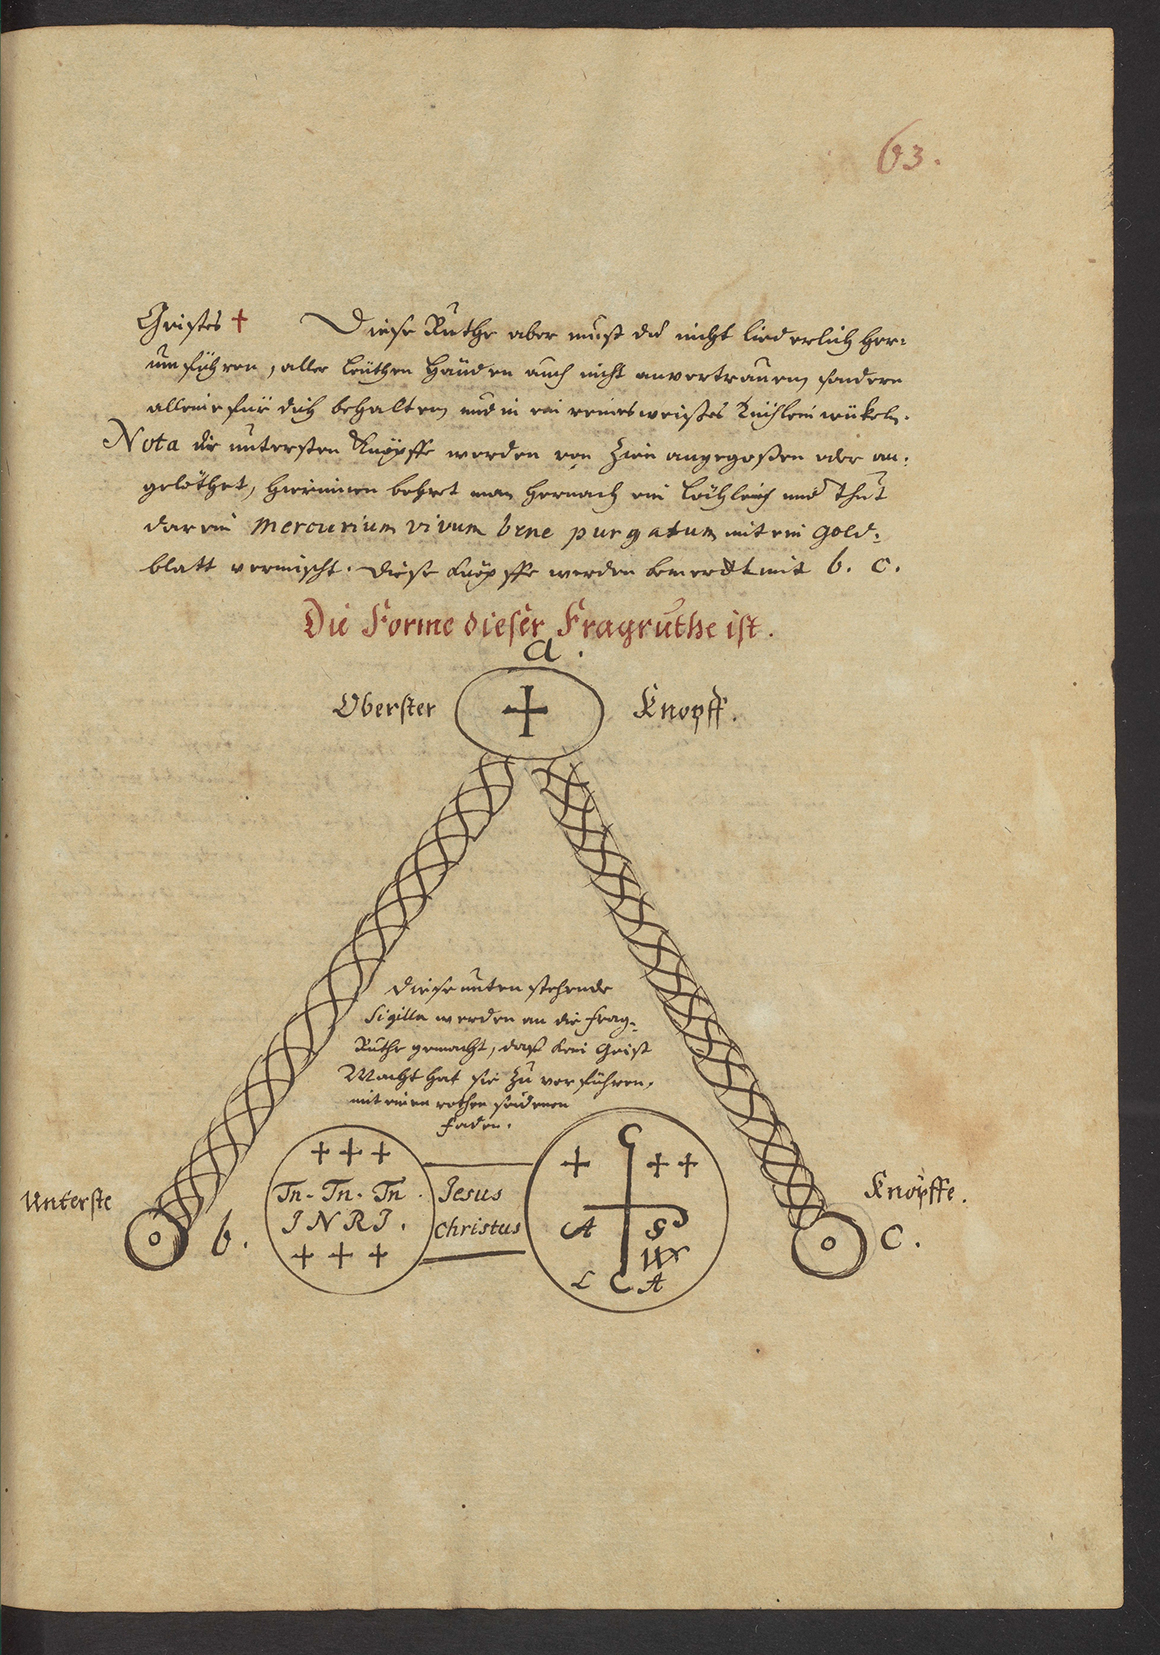 63.
Geistes † Diese Ruthe aber must du nicht liederlich her-
umführen, aller Leüthen Händen auch nicht anvertrauen, sondern
alleine für dich behalten, und in ein reines weißes Tüchlein wükeln.
Nota die untersten Knöpffe werden von Zien angegoßen oder an-
gelöthet, hierinnen bohrt man hernach ein Löchlein und thut
darein Mercurium vivum bene purgatum mit ein Gold-
blatt vermischt. Diese Knöpffe werden bemerckt mit b. c.
Die Forme dieser Fragruthe ist.
a.
Oberster Knopff.
Diese unten stehende
Sigilla werden an die Frag-
Ruthe gemacht, daß kein Geist
Macht hat sie zu verführen,
mit einen rothen seidenen
Faden.
Unterste Knöpffe.
b. c.
+ + +
Tn. Tn. Tn.
I N R I.
+ + +
Jesus
Christus
G
+ + +
A S
L C A